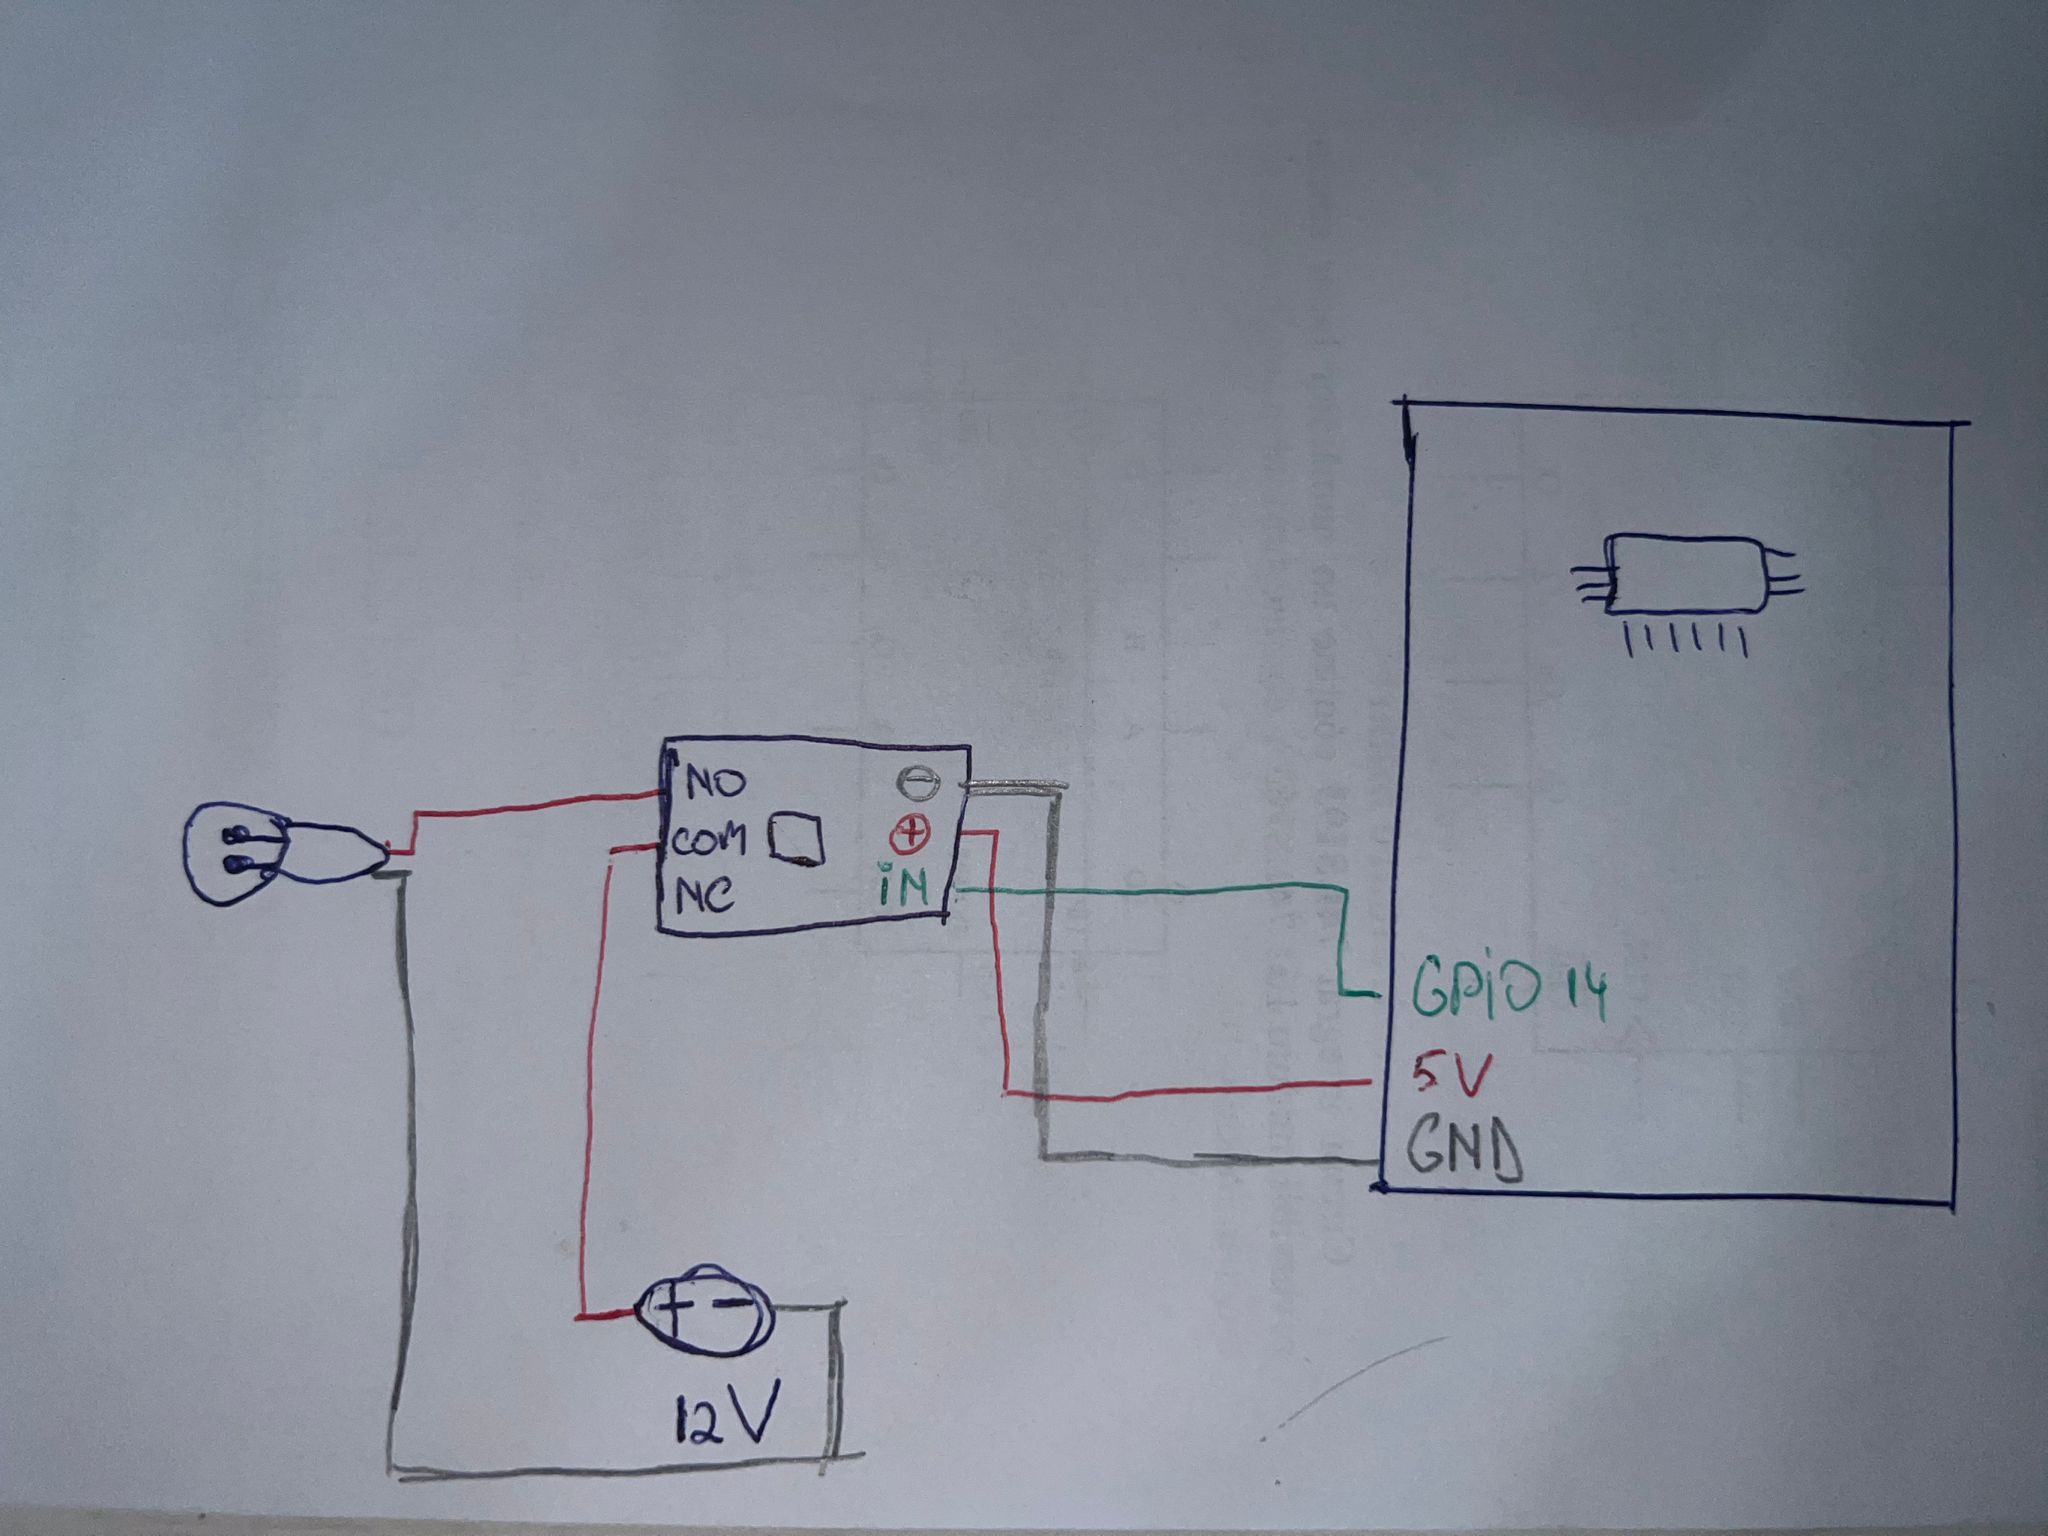 NO
COM
NC
⊖
⊕
iN
GPiO 14
5V
GND
+ -
12V